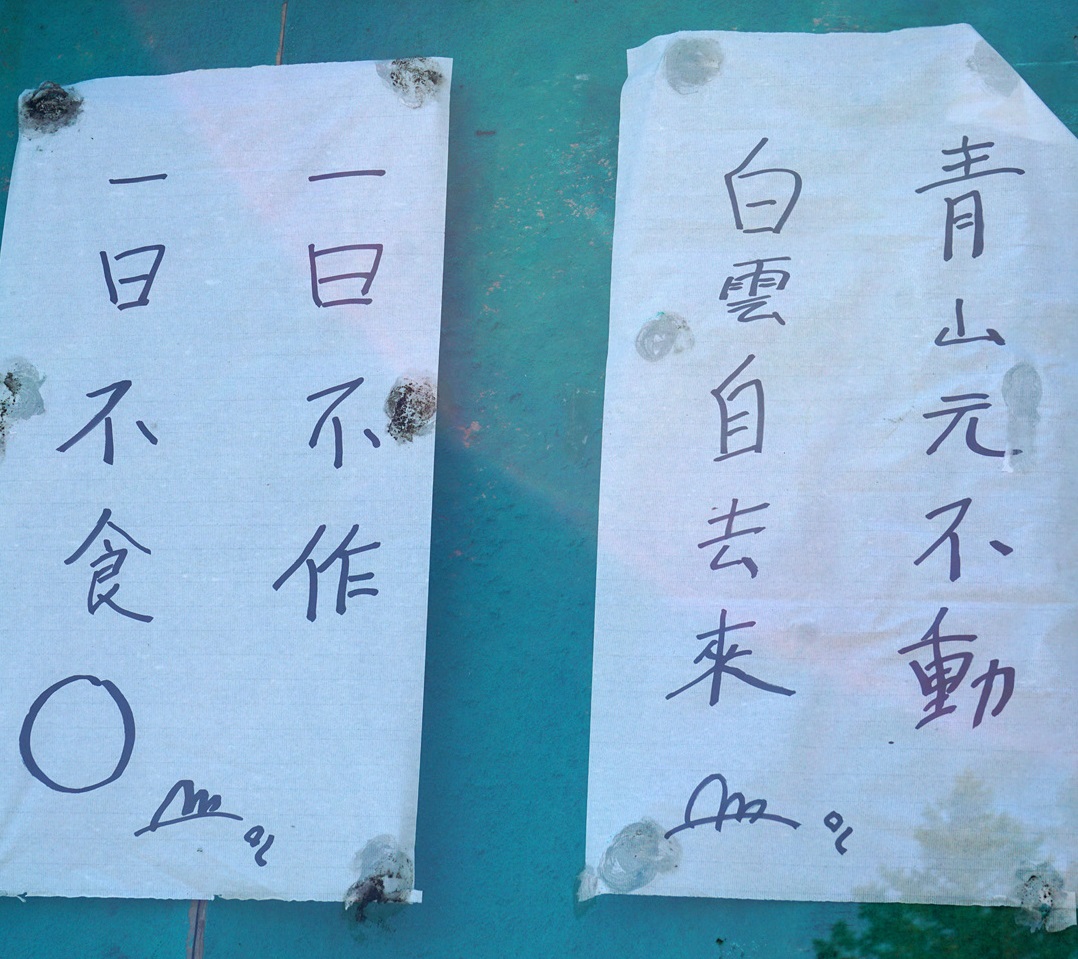 青山元不動
白雲自去來
一日不作
一日不食